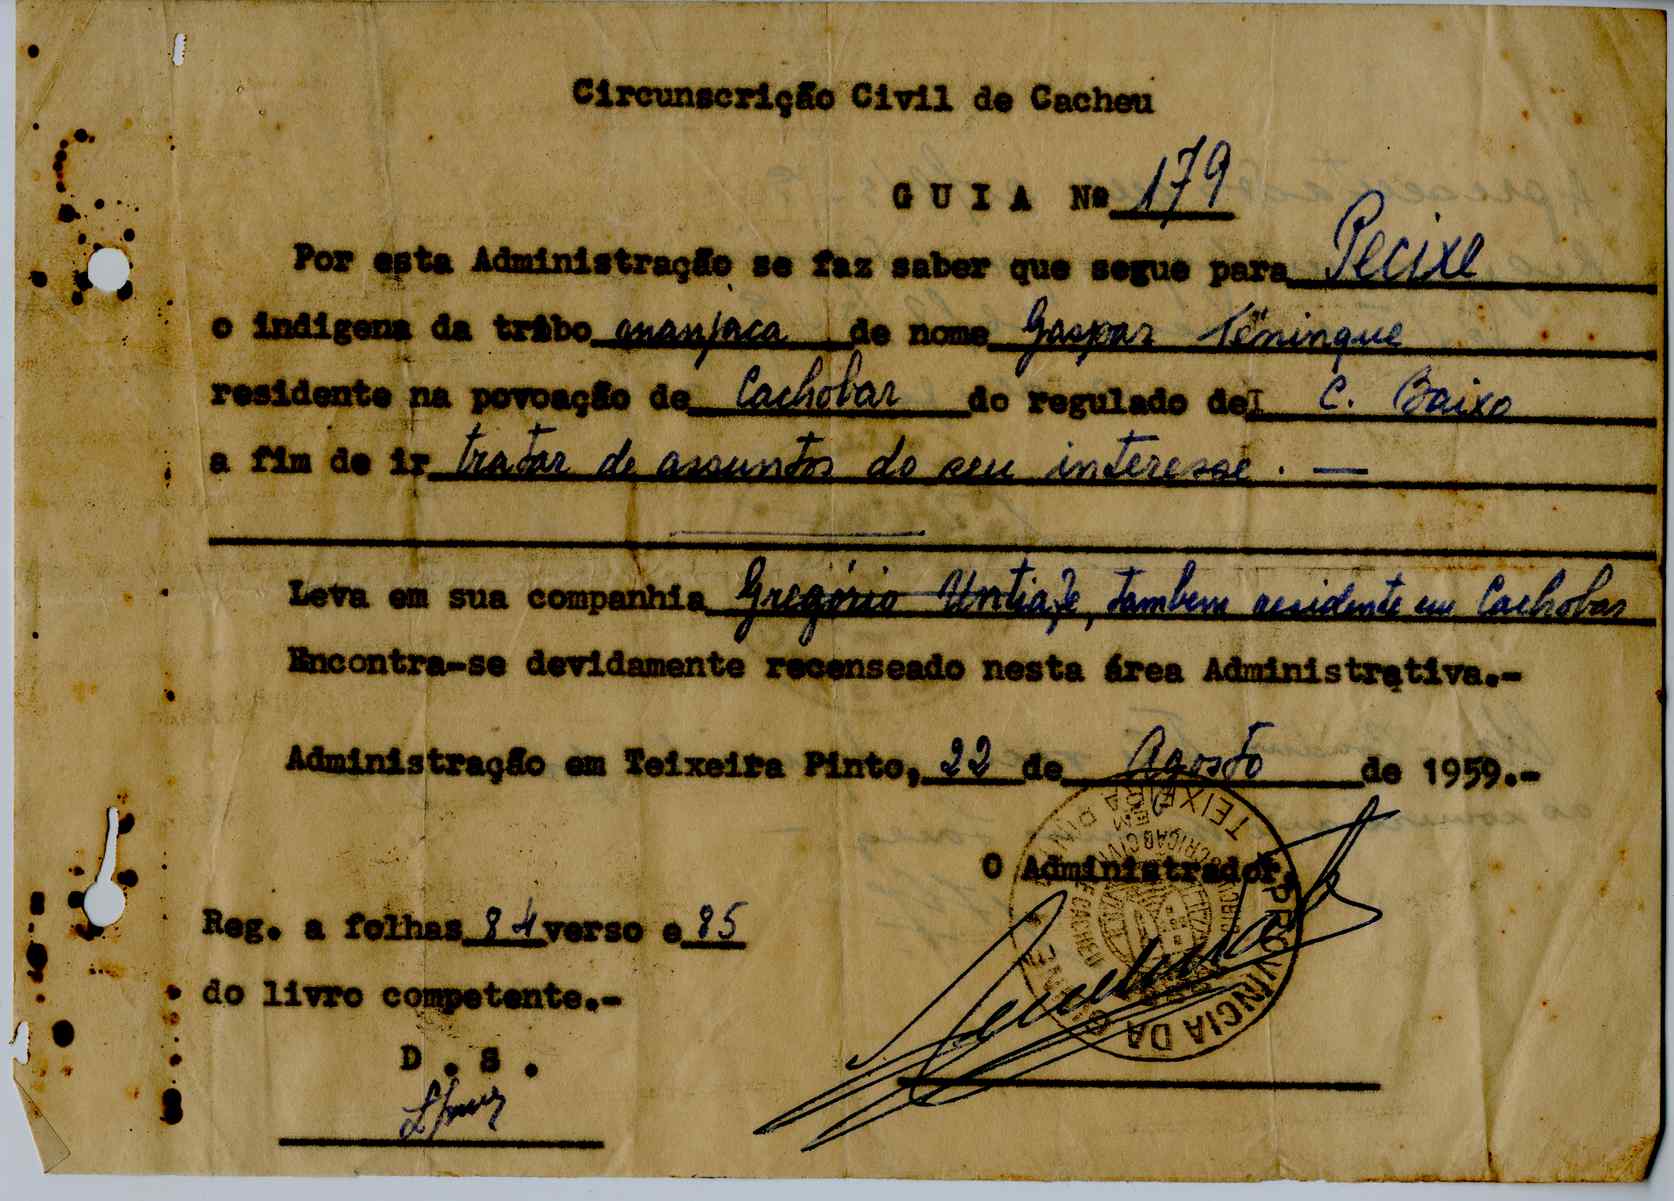 Circunscrição Civil de Cacheu
G U I A Nº 179
Por esta Administração se faz saber que segue para Pecixe
o indigena da tribo manjaca de nome Gaspar Têninque
residente na povoação de Cachobar do regulado de C. Baixo
a fim de ir tratar de assuntos do seu interesse. —
Leva em sua companhia Gregório Untiaté, tambem residente em Cachobar
Encontra-se devidamente recenseado nesta área Administrativa.-
Administração em Teixeira Pinto, 22 de Agosto de 1959.-
O Administrador,
PROVÍNCIA DA
TEIXEIRA PINTO
Reg. a folhas 84 verso e 85
do livro competente.-
D . S .